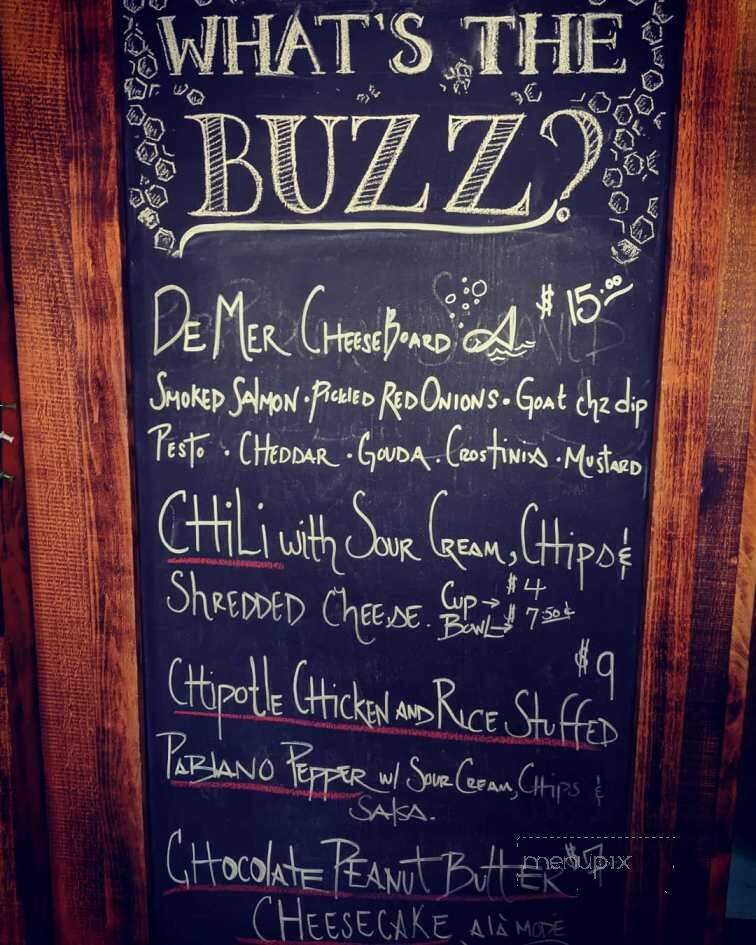 WHAT'S THE
BUZZ?
DE MER CHEESEBOARD $ 15.00
SMOKED SALMON · PICKLED RED ONIONS · GOAT chz dip
PESTO · CHEDDAR · GOUDA · CROSTINIS · MUSTARD
CHILI with SOUR CREAM, CHIPS &
SHREDDED CHEESE. CUP → $ 4
BOWL → $ 7.50¢
$ 9
CHIPOTLE CHICKEN AND RICE STUFFED
PABLANO PEPPER w/ SOUR CREAM, CHIPS &
SALSA.
CHOCOLATE PEANUT BUTTER $7
menupix
CHEESECAKE A LÀ MODE